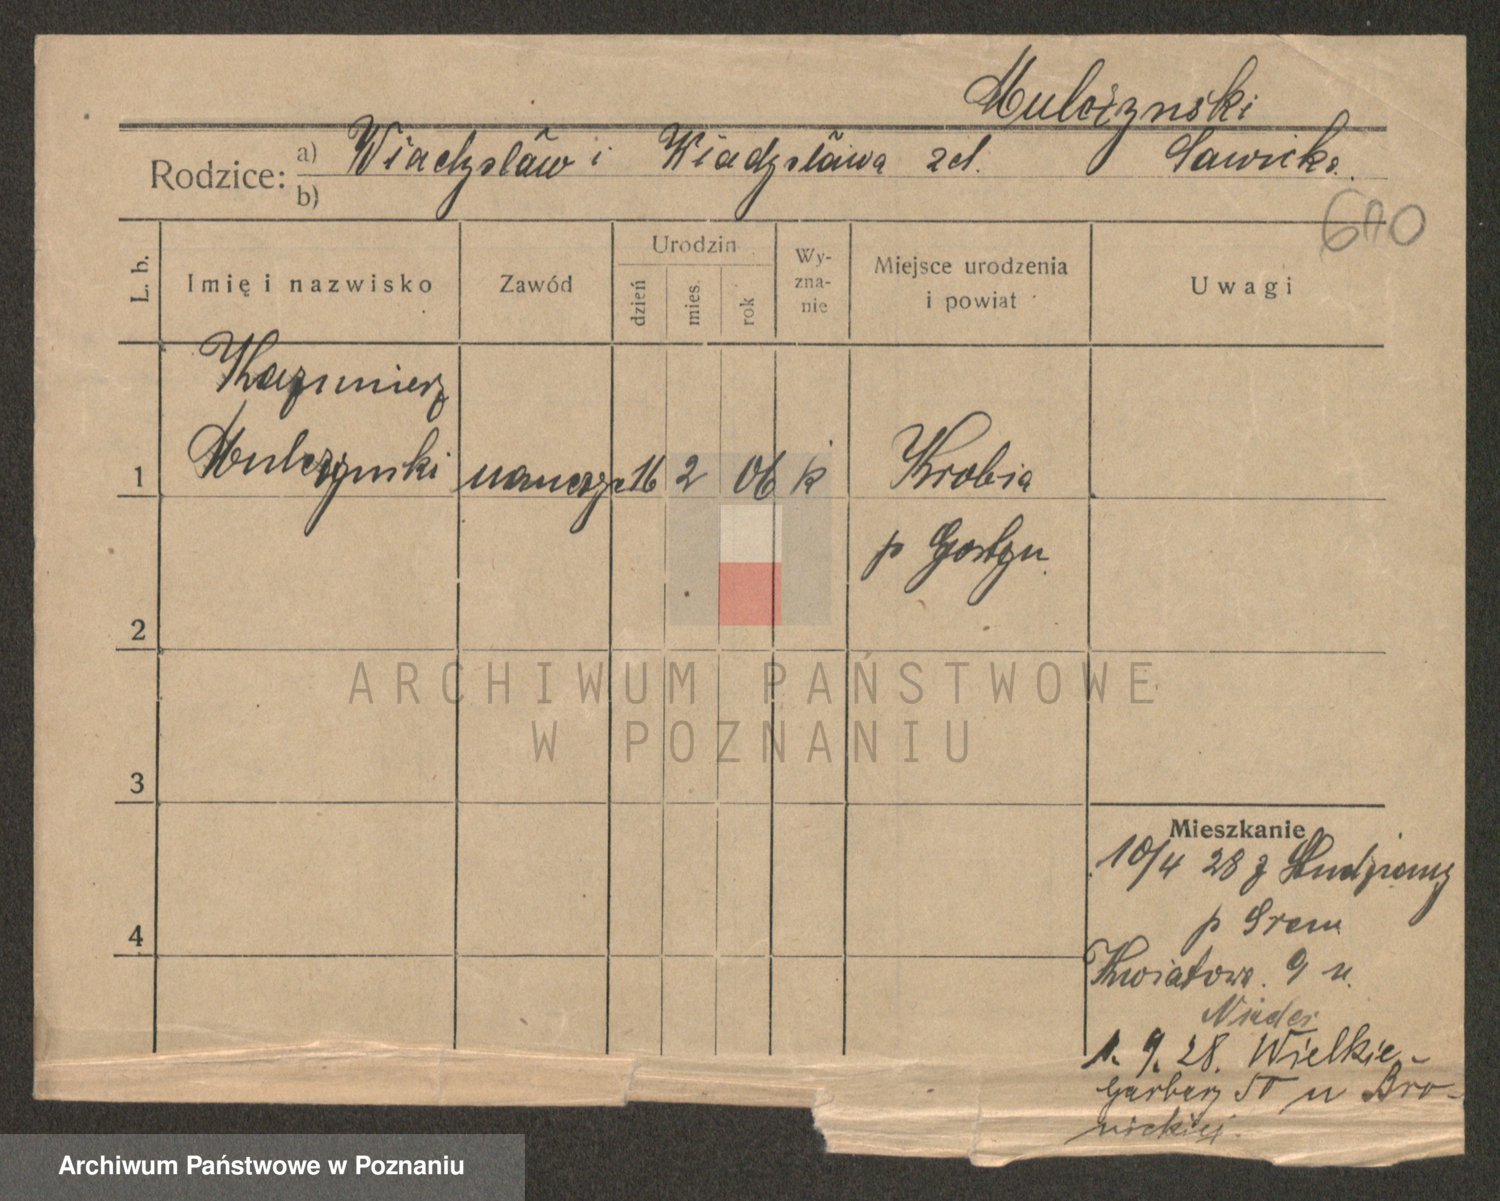 Mulczynski
Rodzice: a) Władysław i Władysława zd. Sawicka.
b)
600
L. b. Imię i nazwisko Zawód Urodzin dzień mies. rok Wyznanie Miejsce urodzenia i powiat Uwagi
Kazimierz
1 Mulczynski 16 2 06 k Krobia
p Gostyn.
2
ARCHIWUM PAŃSTWOWE
W POZNANIU
3
Mieszkanie
10/4 28 z
p Srem
4
Kwiatowa. 9 u.
1. 9. 28. Wielkie-
Garbary 50 u Bro-
nickiej.
Archiwum Państwowe w Poznaniu